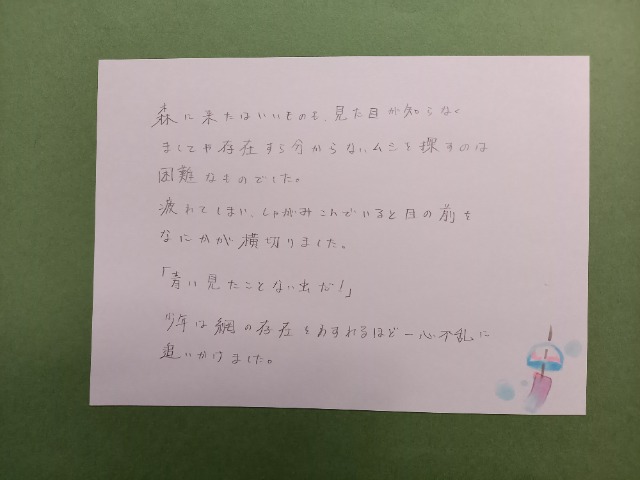 森に来たはいいものも、見た目が知らなく
ましてや存在すら分からないムシを探すのは
困難なものでした。
疲れてしまい、しゃがみこんでいると目の前を
なにかが横切りました。
「青い見たことない虫だ!」
少年は網の存在をわすれるほど一心不乱に
追いかけました。